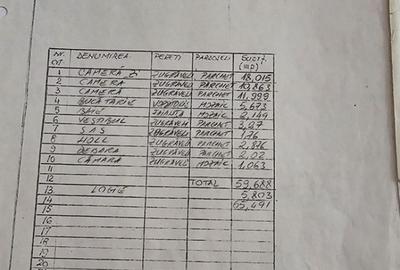 NR. CRT. DENUMIREA PERETI PARDOSELI SUPRAF. (MP)
1 CAMERĂ ZUGRĂVELI PARCHET 18,015
2 CAMERA ZUGRĂVELI PARCHET 10,863
3 CAMERA ZUGRĂVELI PARCHET 11,999
4 BUCĂTĂRIE MOZAIC 5,673
5 BAIE FAIANTA MOZAIC 2,149
6 VESTIBUL ZUGRĂVELI PARCHET
7 SAS ZUGRĂVELI PARCHET 1,76
8 HOLL ZUGRĂVELI PARCHET
9 DEBARA ZUGRĂVELI PARCHET 2,02
10 CĂMARA ZUGRĂVELI MOZAIC 1,063
11
12 TOTAL 59,688
13 LOGIE 5,803
14 65,491
15
16
17
18
19
20